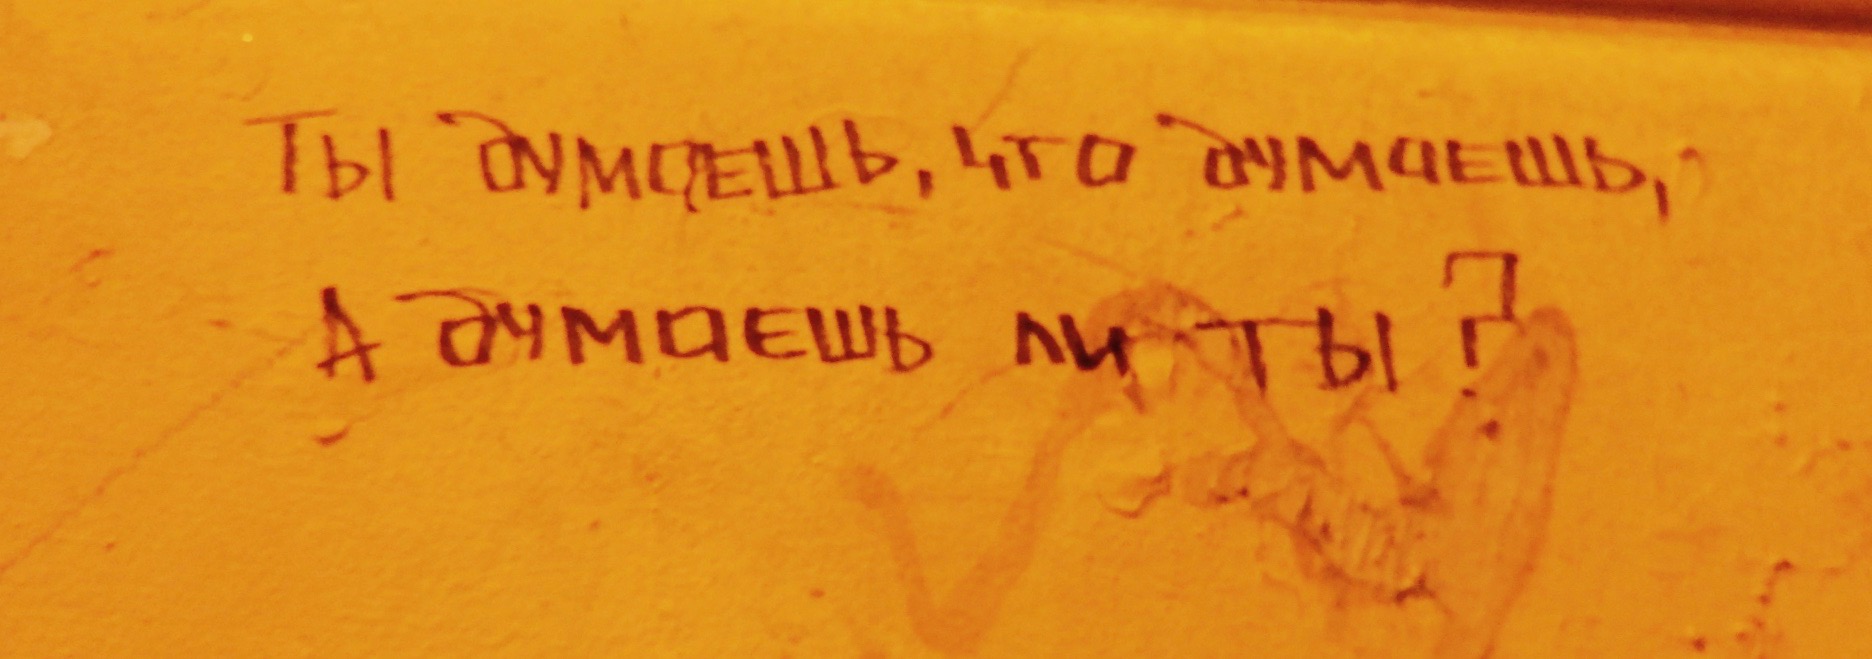 Ты думаешь, что думаешь,
А думаешь ли ты?